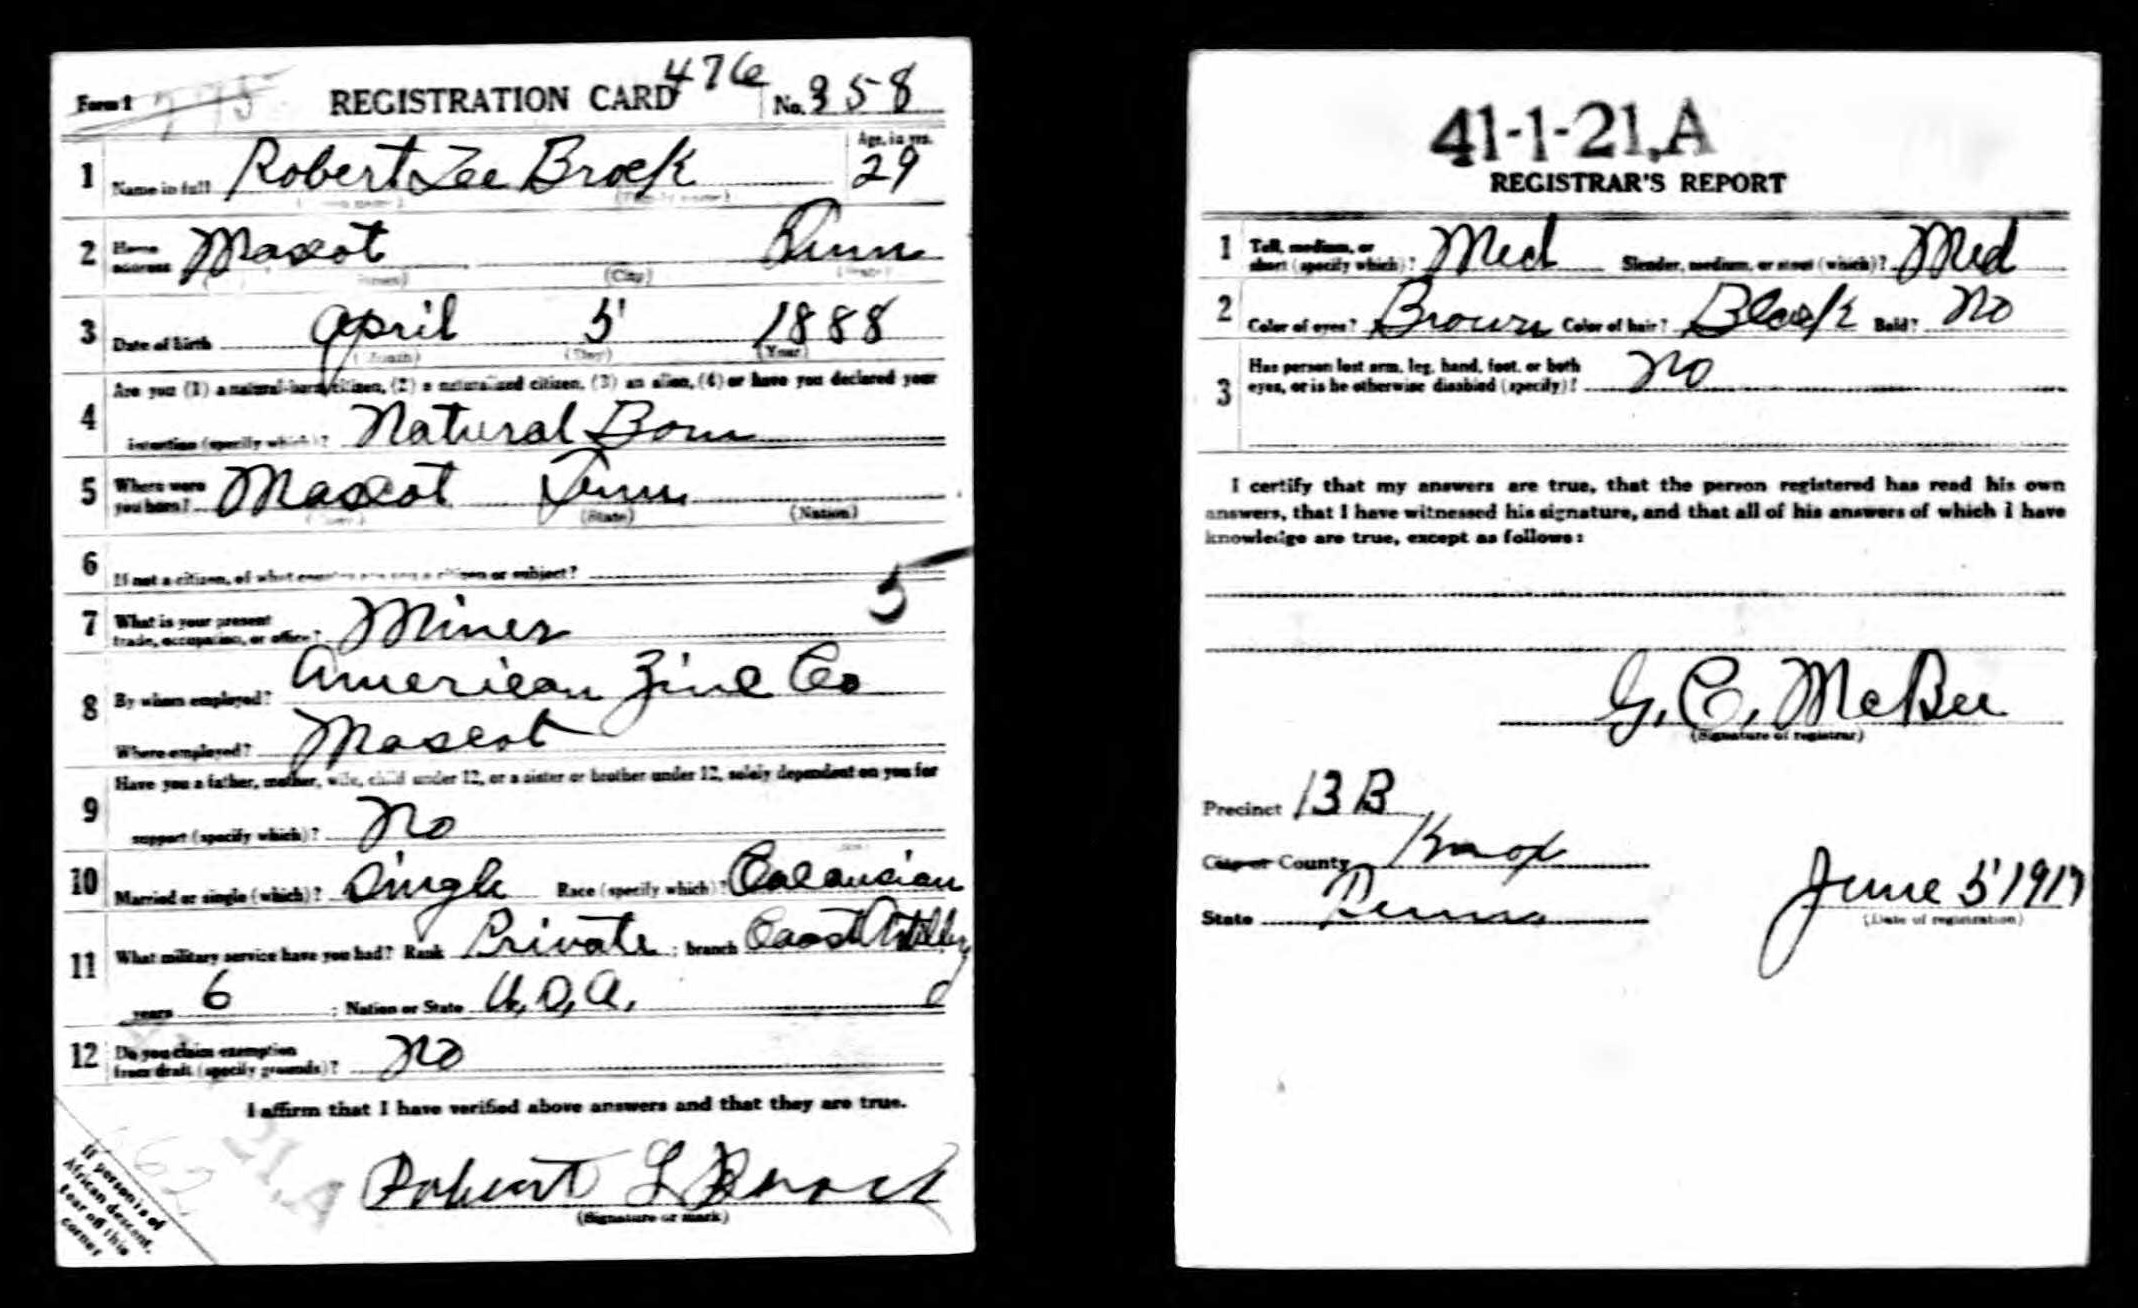 476
Form 1 775 REGISTRATION CARD No. 358
1 Name in full Robert Lee Brock Age, in yrs. 29
(Given name) (Family name)
2 Home address Mascot Tenn
(Street) (City) (State)
3 Date of birth April 5 1888
(Month) (Day) (Year)
4 Are you (1) a natural-born citizen, (2) a naturalized citizen, (3) an alien, (4) or have you declared your
intention (specify which)? Natural Born
5 Where were you born? Mascot Tenn
(Town) (State) (Nation)
6 If not a citizen, of what country are you a citizen or subject?
5
7 What is your present trade, occupation, or office? Miner
8 By whom employed? American Zinc Co
Where employed? Mascot
9 Have you a father, mother, wife, child under 12, or a sister or brother under 12, solely dependent on you for
support (specify which)? No
10 Married or single (which)? Single Race (specify which)? Caucausian
11 What military service have you had? Rank Private ; branch Coast Artillery
years 6 ; Nation or State U.S.A.
12 Do you claim exemption from draft (specify grounds)? No
I affirm that I have verified above answers and that they are true.
Robert L Brock
(Signature or mark)
If person is of
African descent,
tear off this
corner
21,A
41-1-21,A
REGISTRAR'S REPORT
1 Tall, medium, or short (specify which)? Med Slender, medium, or stout (which)? Med
2 Color of eyes? Brown Color of hair? Black Bald? No
3 Has person lost arm, leg, hand, foot, or both
eyes, or is he otherwise disabled (specify)? No
I certify that my answers are true, that the person registered has read his own
answers, that I have witnessed his signature, and that all of his answers of which I have
knowledge are true, except as follows:
G. C. McBee
(Signature of registrar)
Precinct 13 B
City or County Knox
State Tenn
June 5 1917
(Date of registration)